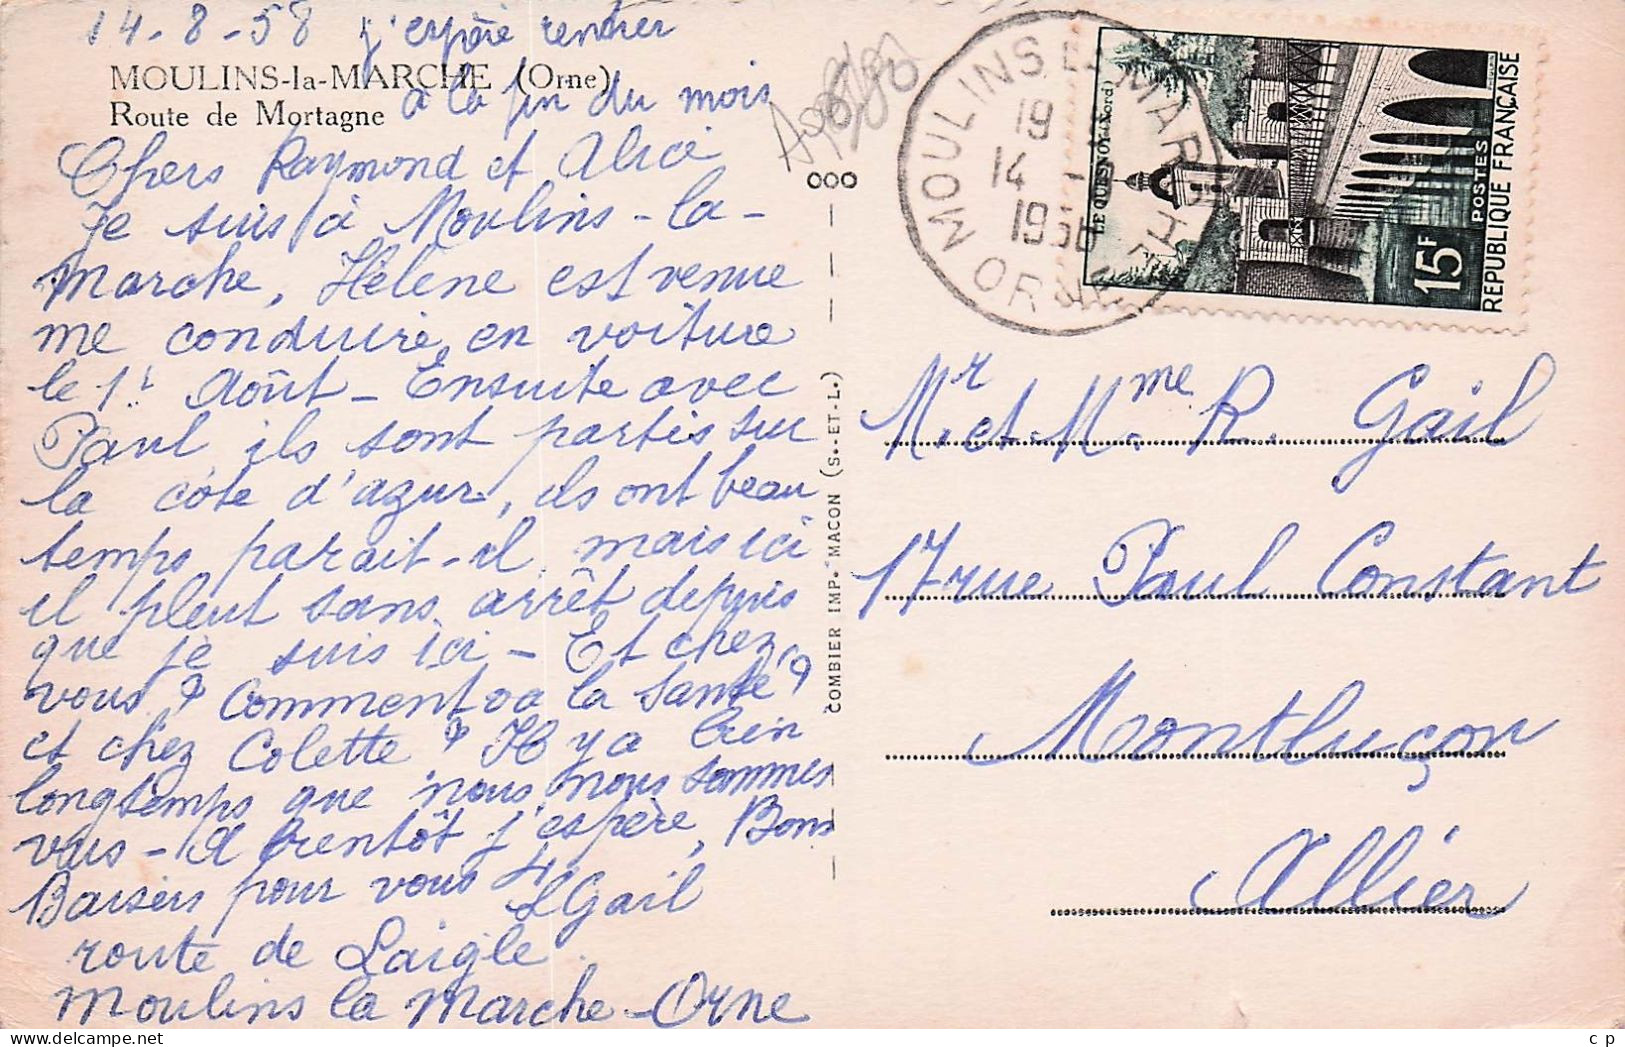 14-8-58 j'espère rentrer
MOULINS-la-MARCHE (Orne)
à la fin du mois
Route de Mortagne
Chers Raymond et Alice
Je suis à Moulins-la-
Marche, Hélène est venue
me conduire en voiture
le 1er Août - Ensuite avec
Paul ils sont partis sur
la côte d'azur, ils ont beau
temps parait-il, mais ici
il pleut sans arrêt depuis
que je suis ici - Et chez
vous ? Comment va la santé ?
et chez Colette ? Il y a bien
longtemps que nous nous sommes
vus - A bientôt j'espère, Bons
Baisers pour vous 4
L Gail
route de Laigle
Moulins la Marche - Orne
COMBIER IMP. MACON (S.-ET-L.)
MOULINS LA MARCHE
19
14
ORNE
LE QUESNOY (Nord)
15F
POSTES
REPUBLIQUE FRANÇAISE
Mr et Mme R. Gail
17 rue Paul Constant
Montluçon
Allier
c p